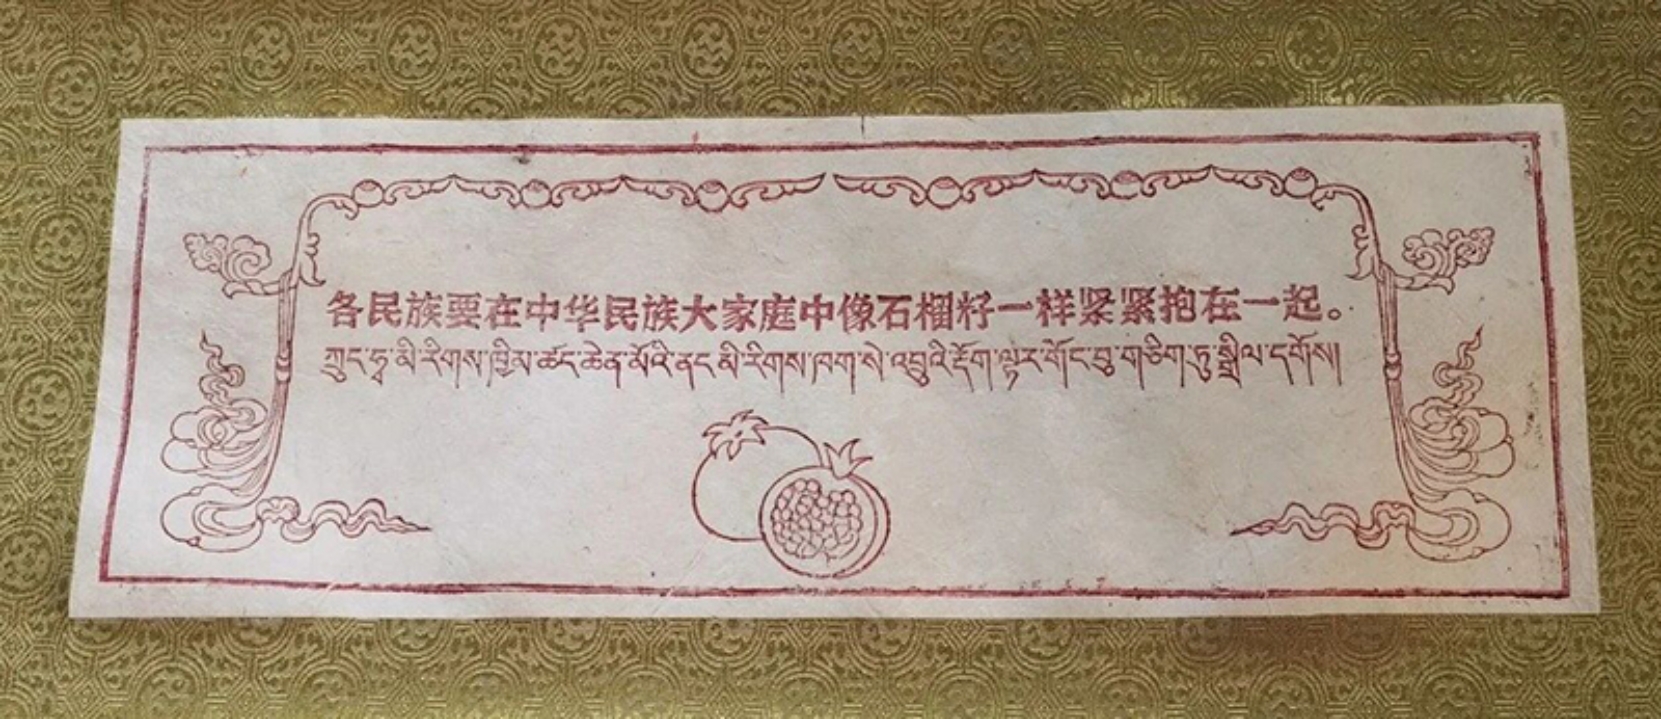 各民族要在中华民族大家庭中像石榴籽一样紧紧抱在一起。
ཀྲུང་ཧྭ་མི་རིགས་ཁྱིམ་ཚང་ཆེན་མོའི་ནང་མི་རིགས་ཁག་སེ་འབྲུའི་རྡོག་ལྟར་གོང་བུ་གཅིག་ཏུ་སྒྲིལ་དགོས།